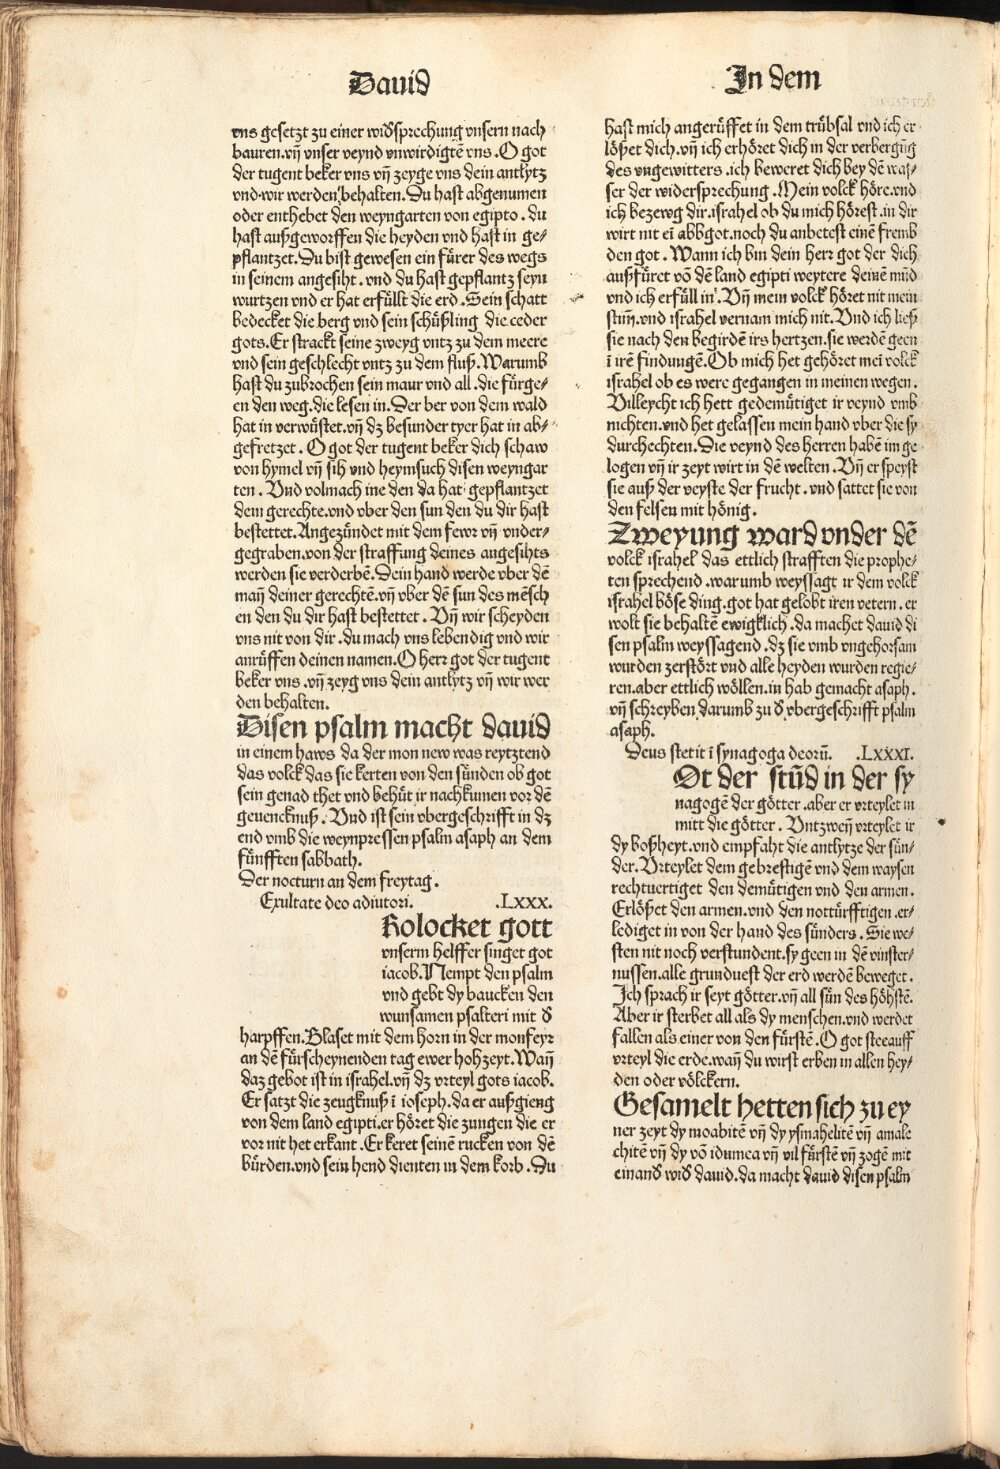 Dauid
vns gesetzt zu einer widsprechung vnsern nach
bauren.vñ vnser veynd vnwirdigtē vns.O got
der tugent beker vns vñ zeyge vns dein antlytz
vnd wir werden behalten.Du hast abgenumen
oder enthebet den weyngarten von egipto.du
hast außgeworffen die heyden vnd hast in ge⸗
pflantzet.Du bist gewesen ein fürer des wegs
in seinem angesiht.vnd du hast gepflantz seyn
wurtzen vnd er hat erfüllt die erd.Sein schatt
bedecket die berg vnd sein schüßling die ceder
gots.Er strackt seine zweyg vntz zu dem meere
vnd sein geschlecht vntz zu dem fluß.Warumb
hast du zubrochen sein maur vnd all.die fürge⸗
en den weg.die lesen in.Der ber von dem wald
hat in verwüstet.vñ dz besunder tyer hat in ab⸗
gefretzet.O got der tugent beker dich schaw
von hymel vñ sih vnd heymsuch disen weyngar
ten.Vnd volmach ine den da hat gepflantzet
dem gerechte.vnd vber den sun den du dir hast
bestettet.Angezündet mit dem fewr vñ vnder⸗
gegraben.von der straffung deines angesihts
werden sie verderbē.Dein hand werde vber dē
man deiner gerechtē.vñ vber dē sun des mēsch
en den du dir hast bestettet.Vñ wir scheyden
vns nit von dir.du mach vns lebendig vnd wir
anrüffen deinen namen.O herr got der tugent
beker vns.vñ zeyg vns dein antlytz vñ wir wer
den behalten.
Disen psalm macht dauid
in einem haws da der mon new was reytztend
das volck das sie kerten von den sünden ob got
sein genad thet vnd behüt ir nachkumen vor dē
geuencknuß.Vnd ist sein vbergeschrifft in dz
end vmb die weynpressen psalm asaph an dem
fünfften sabbath.
Der nocturn an dem freytag.
Exultate deo adiutori. .LXXX.
Rolocket gott
vnserm helffer singet got
iacob.Nempt den psalm
vnd gebt dy baucken den
wunsamen psalteri mit d
harpffen.Blaset mit dem horn in der monfeyr
an dē fürscheynenden tag ewer hohzeyt.Wañ
daz gebot ist in israhel.vñ dz vrteyl gots iacob.
Er satzt die zeugknuß ī ioseph.da er außgieng
von dem land egipti.er höret die zungen die er
vor nit het erkant.Er keret seinē rucken von dē
bürden.vnd sein hend dienten in dem korb.Du
In dem
hast mich angerüffet in dem trübsal vnd ich er
lößet dich.vñ ich erhöret dich in der verbergūg
des vngewitters.ich beweret dich bey dē was⸗
ser der widersprechung.Mein volck höre.vnd
ich bezewg dir.israhel ob du mich hörest.in dir
wirt nit ei abbgot.noch du anbetest einē fremb
den got.Wann ich bin dein herr got der dich
außfüret vō dē land egipti weytere deinē mūd
vnd ich erfüll in.Vñ mein volck höret nit mein
stim̄.vnd israhel vernam mich nit.Vnd ich ließ
sie nach den begirdē irs hertzen.sie werdē geen
ī irē finduugē.Ob mich het gehöret mei volck
israhel ob es were gegangen in meinen wegen.
Villeycht ich hett gedemütiget ir veynd vmb
nichten.vnd het gelassen mein hand vber die sy
durchechten.Die veynd des herren habē im ge
logen vñ ir zeyt wirt in dē welten.Vñ er speyst
sie auß der veyste der frucht.vnd sattet sie von
den felsen mit hönig.
Zweyung ward vnder dē
volck israhel das ettlich strafften die prophe⸗
ten sprechend.warumb weyssagt ir dem volck
israhel böse ding.got hat gelobt iren vetern.er
wolt sie behaltē ewigklich.da machet dauid di
sen psalm weyssagend.dz sie vmb vngehorsam
wurden zerstört vnd alle heyden wurden regie⸗
ren.aber ettlich wöllen.in hab gemacht asaph.
vñ schreyben darumb zu d vbergeschrifft psalm
asaph.
Deus stetit ī synagoga deorū. .LXXXI.
Ot der stūd in der sy
nagogē der götter.aber er vrteylet in
mitt die götter.Vntzweñ vrteylet ir
dy boßheyt.vnd empfaht die antlytze der sün⸗
der.Vrteylet dem gebrestigē vnd dem waysen
rechtuertiget den demütigen vnd den armen.
Erlößet den armen.vnd den nottürfftigen.er⸗
lediget in von der hand des sünders.Sie we⸗
sten nit noch verstundent.sy geen in dē vinster⸗
nussen.alle grunduest der erd werdē beweget.
Ich sprach ir seyt götter.vñ all sün des höhstē.
Aber ir sterbet all als dy menschen.vnd werdet
fallen als einer von den fürstē.O got stee auff
vrteyl die erde.wañ du wirst erben in allen hey⸗
den oder völckern.
Gesamelt hetten sich zu ey
ner zeyt dy moabitē vñ dy ysmahelitē vñ amale
chitē vñ dy vō idumea vñ vil fürstē vñ zogē mit
einand wid dauid.da macht dauid disen psalm